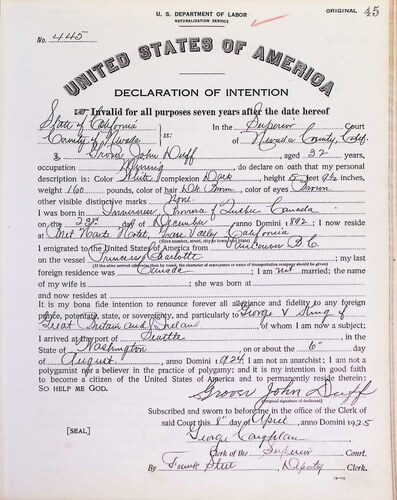 U. S. DEPARTMENT OF LABOR
NATURALIZATION SERVICE
ORIGINAL 45
No. 445
UNITED STATES OF AMERICA
DECLARATION OF INTENTION
Invalid for all purposes seven years after the date hereof
State of California
In the Superior Court
County of Nevada ss: of Nevada County, Calif.
I, Grover John Duff, aged 32 years,
occupation Mining, do declare on oath that my personal
description is: Color White, complexion Dark, height 5 feet 9½ inches,
weight 160 pounds, color of hair Dk Brown, color of eyes Brown
other visible distinctive marks None
I was born in Province of Quebec Canada
on the 22nd day of December, anno Domini 1892; I now reside
at Hotel, Grass Valley California
(Give number, street, city or town, and State)
I emigrated to the United States of America from Vancouver B.C.
on the vessel Princess Charlotte; my last
(If the alien arrived otherwise than by vessel, the character of conveyance or name of transportation company should be given)
foreign residence was Canada; I am not married; the name
of my wife is; she was born at
and now resides at
It is my bona fide intention to renounce forever all allegiance and fidelity to any foreign
prince, potentate, state, or sovereignty, and particularly to George V King of
Great Britain and Ireland, of whom I am now a subject;
I arrived at the port of Seattle, in the
State of Washington, on or about the 6" day
of August, anno Domini 1924; I am not an anarchist; I am not a
polygamist nor a believer in the practice of polygamy; and it is my intention in good faith
to become a citizen of the United States of America and to permanently reside therein:
SO HELP ME GOD.
Grover John Duff
(Original signature of declarant)
Subscribed and sworn to before me in the office of the Clerk of
said Court this 8th day of April, anno Domini 1925
[SEAL]
George Coughlan
Clerk of the Superior Court.
By Frank Steel, Deputy Clerk.